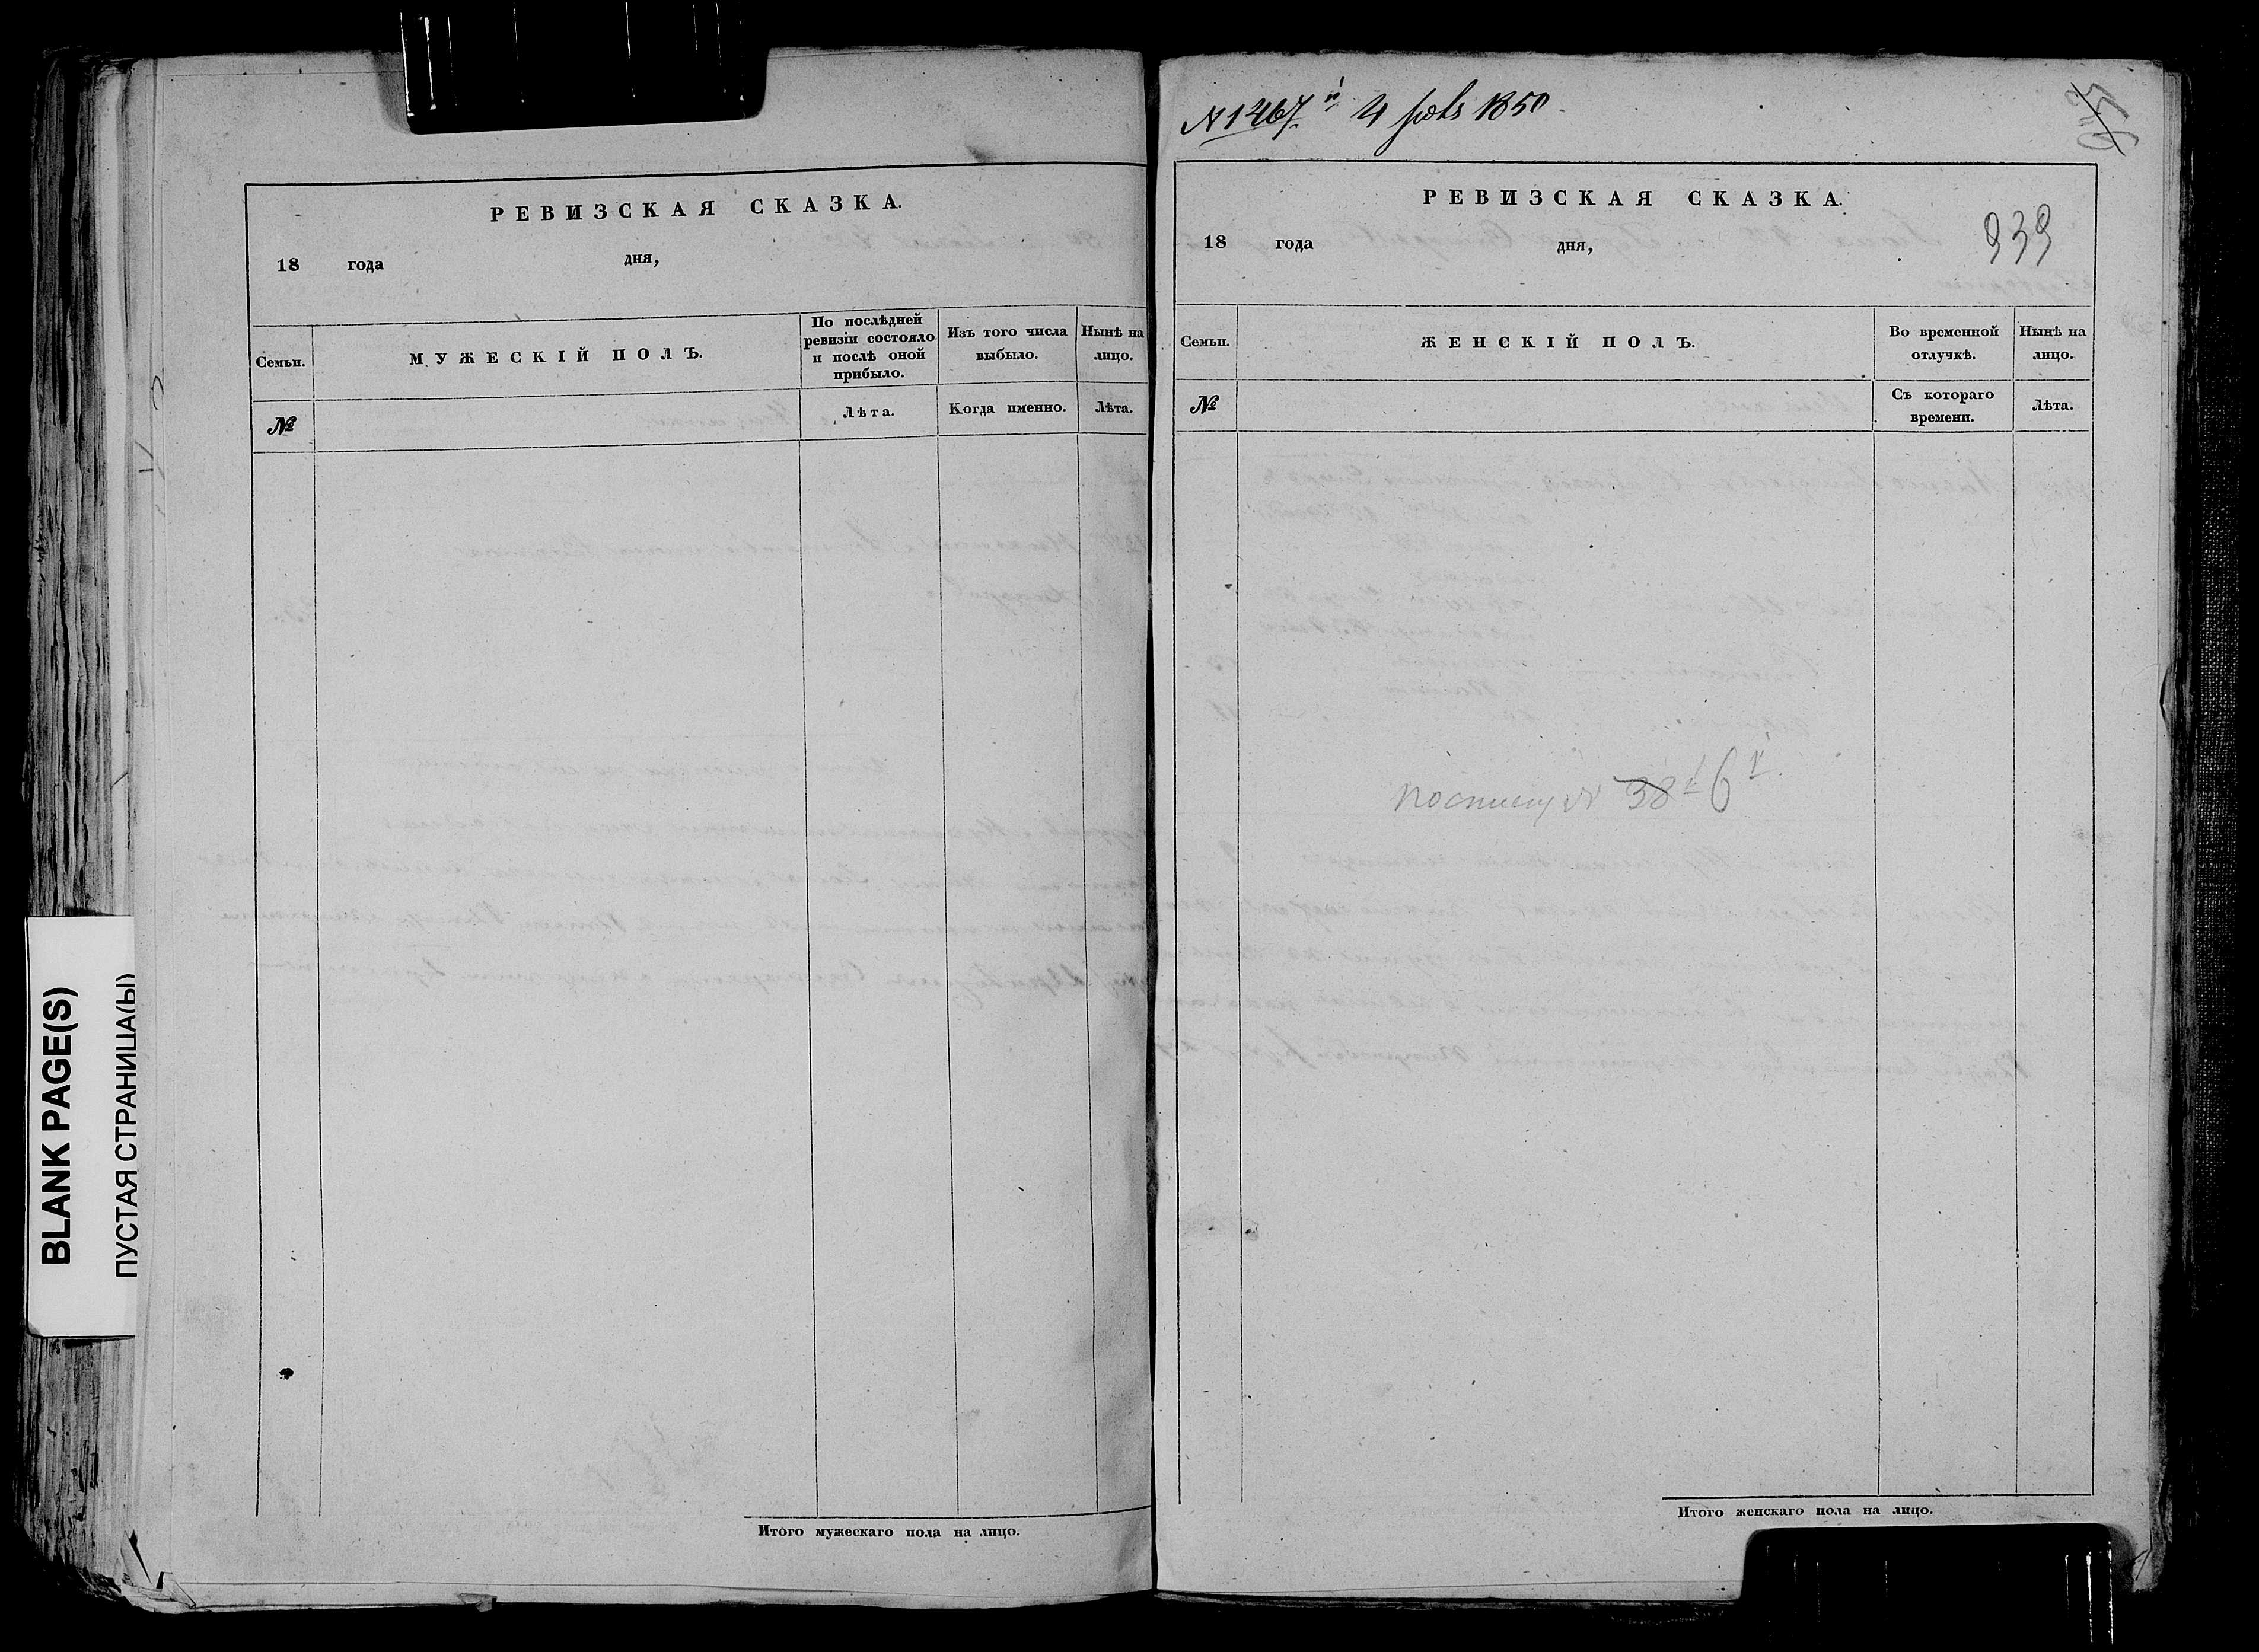 BLANK PAGE(S)
ПУСТАЯ СТРАНИЦА(Ы)
РЕВИЗСКАЯ СКАЗКА.
18 года дня,
Семьи.
МУЖЕСКІЙ ПОЛЪ.
По послѣдней
ревизіи состояло
и послѣ оной
прибыло.
Изъ того числа
выбыло.
Нынѣ на
лицо.
№
Лѣта.
Когда именно.
Лѣта.
Итого мужескаго пола на лицо.
N 1467й 4 1850
РЕВИЗСКАЯ СКАЗКА.
939
18 года дня,
Семьи.
ЖЕНСКІЙ ПОЛЪ.
Во временной
отлучкѣ.
Нынѣ на
лицо.
№
Съ котораго
времени.
Лѣта.
по списку № 38 6
Итого женскаго пола на лицо.